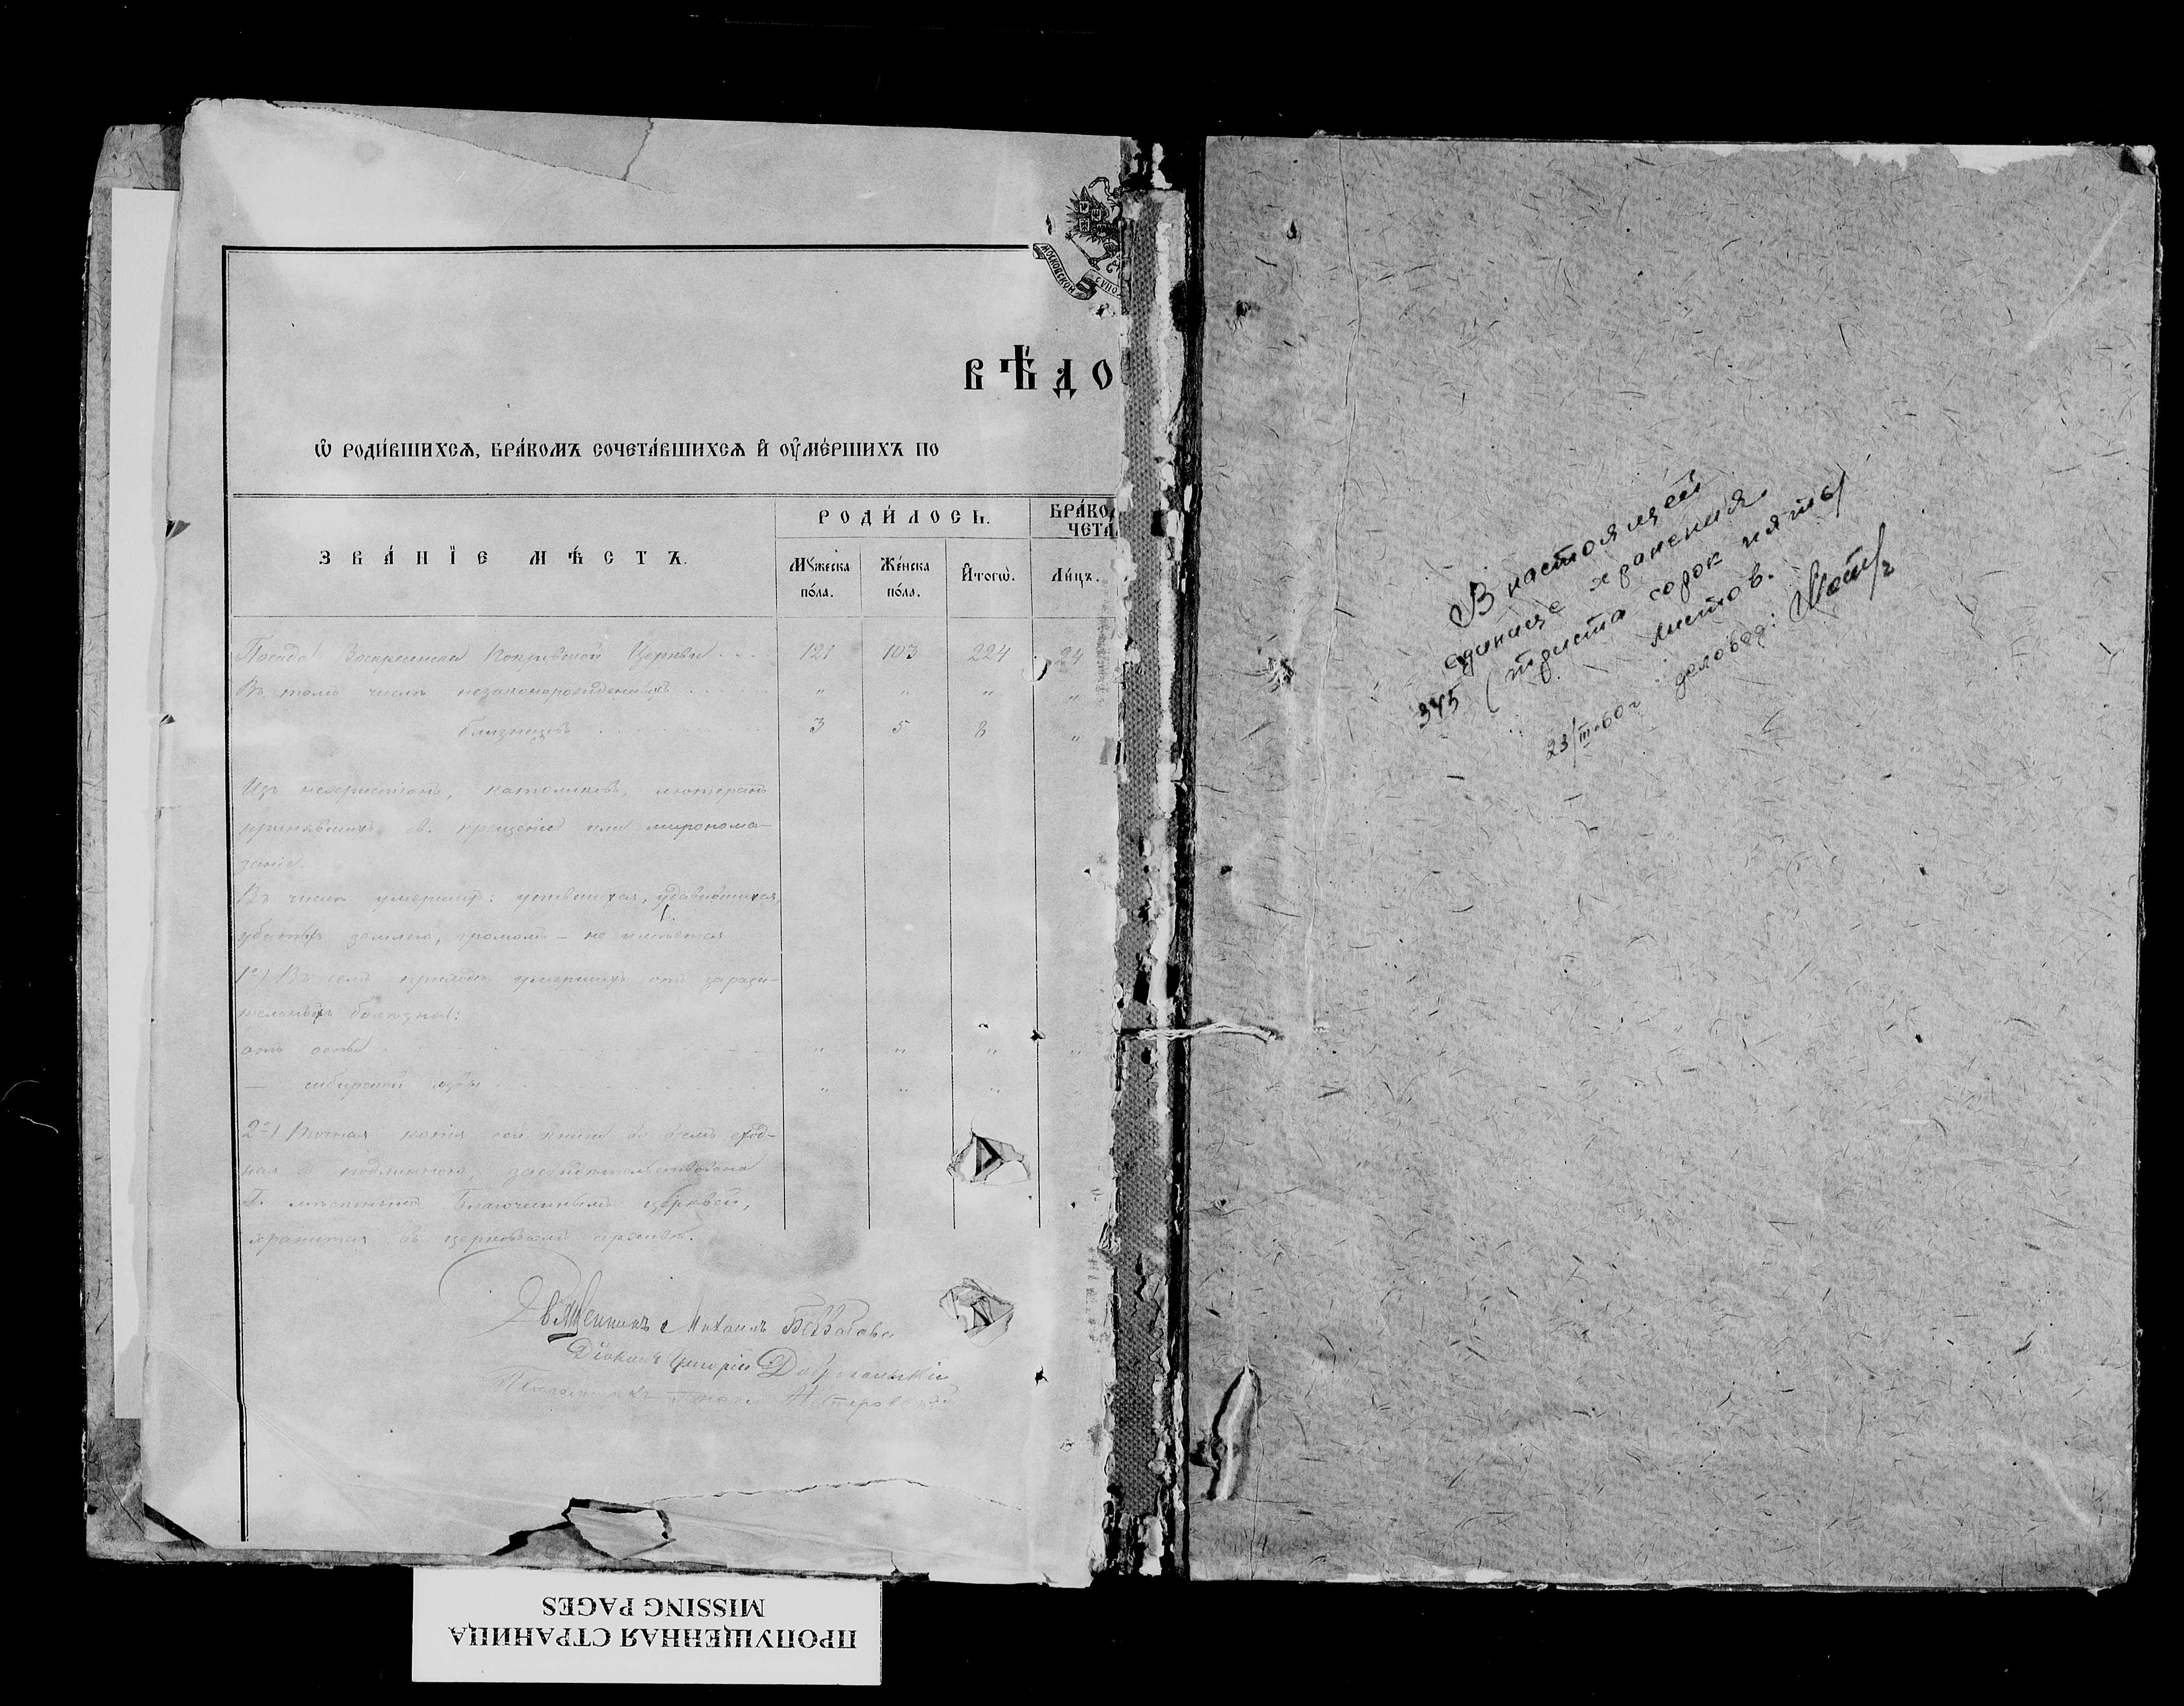 МОСКОВСКОЙ СѴНО
ВѢДО
Ѡ҆ РОДИ́ВШИХСѦ, БРА́КОМЪ СОЧЕТА́ВШИХСѦ И҆ ОУ҆МЕ́РШИХЪ ПО
ЗВА́НІЕ МѢ́СТЪ.
РОДИ́ЛОСЬ.
БРА́КО
ЧЕТА́
Мꙋ́жеска по́ла.
Же́нска по́ла.
И҆тогѡ̀.
Ли́цъ.
Посада Воскресенска Покровской Церкви 121 103 224 24
Въ томъ числѣ незаконорожденныхъ „ „ „ „
близнецовъ 3 5 8 „
Изъ нехристіанъ, католиковъ, лютеранъ
принявшихъ св. крещеніе или миропома-
заніе.
Въ числѣ умершихъ: утопшихся, удавившихся,
убитыхъ землею, громомъ — не имѣется
1º) Въ семъ приходѣ умершихъ отъ зарази-
тельныхъ болѣзней:
отъ оспы „ „ „ „
— сибирской язвы „ „ „
2º) Точная копія сей книги во всемъ сход-
ная съ подлинною, засвидѣтельствована
мѣстнымъ Благочиннымъ церквей,
хранится въ церковномъ архивѣ.
Священникъ Михаилъ
Діаконъ Григорій
Псаломщикъ
В настоящей
единице хранения
345 (триста сорок пять)
листов.
23/III-60 г деловод:
ПРОПУЩЕННАЯ СТРАНИЦА
MISSING PAGES